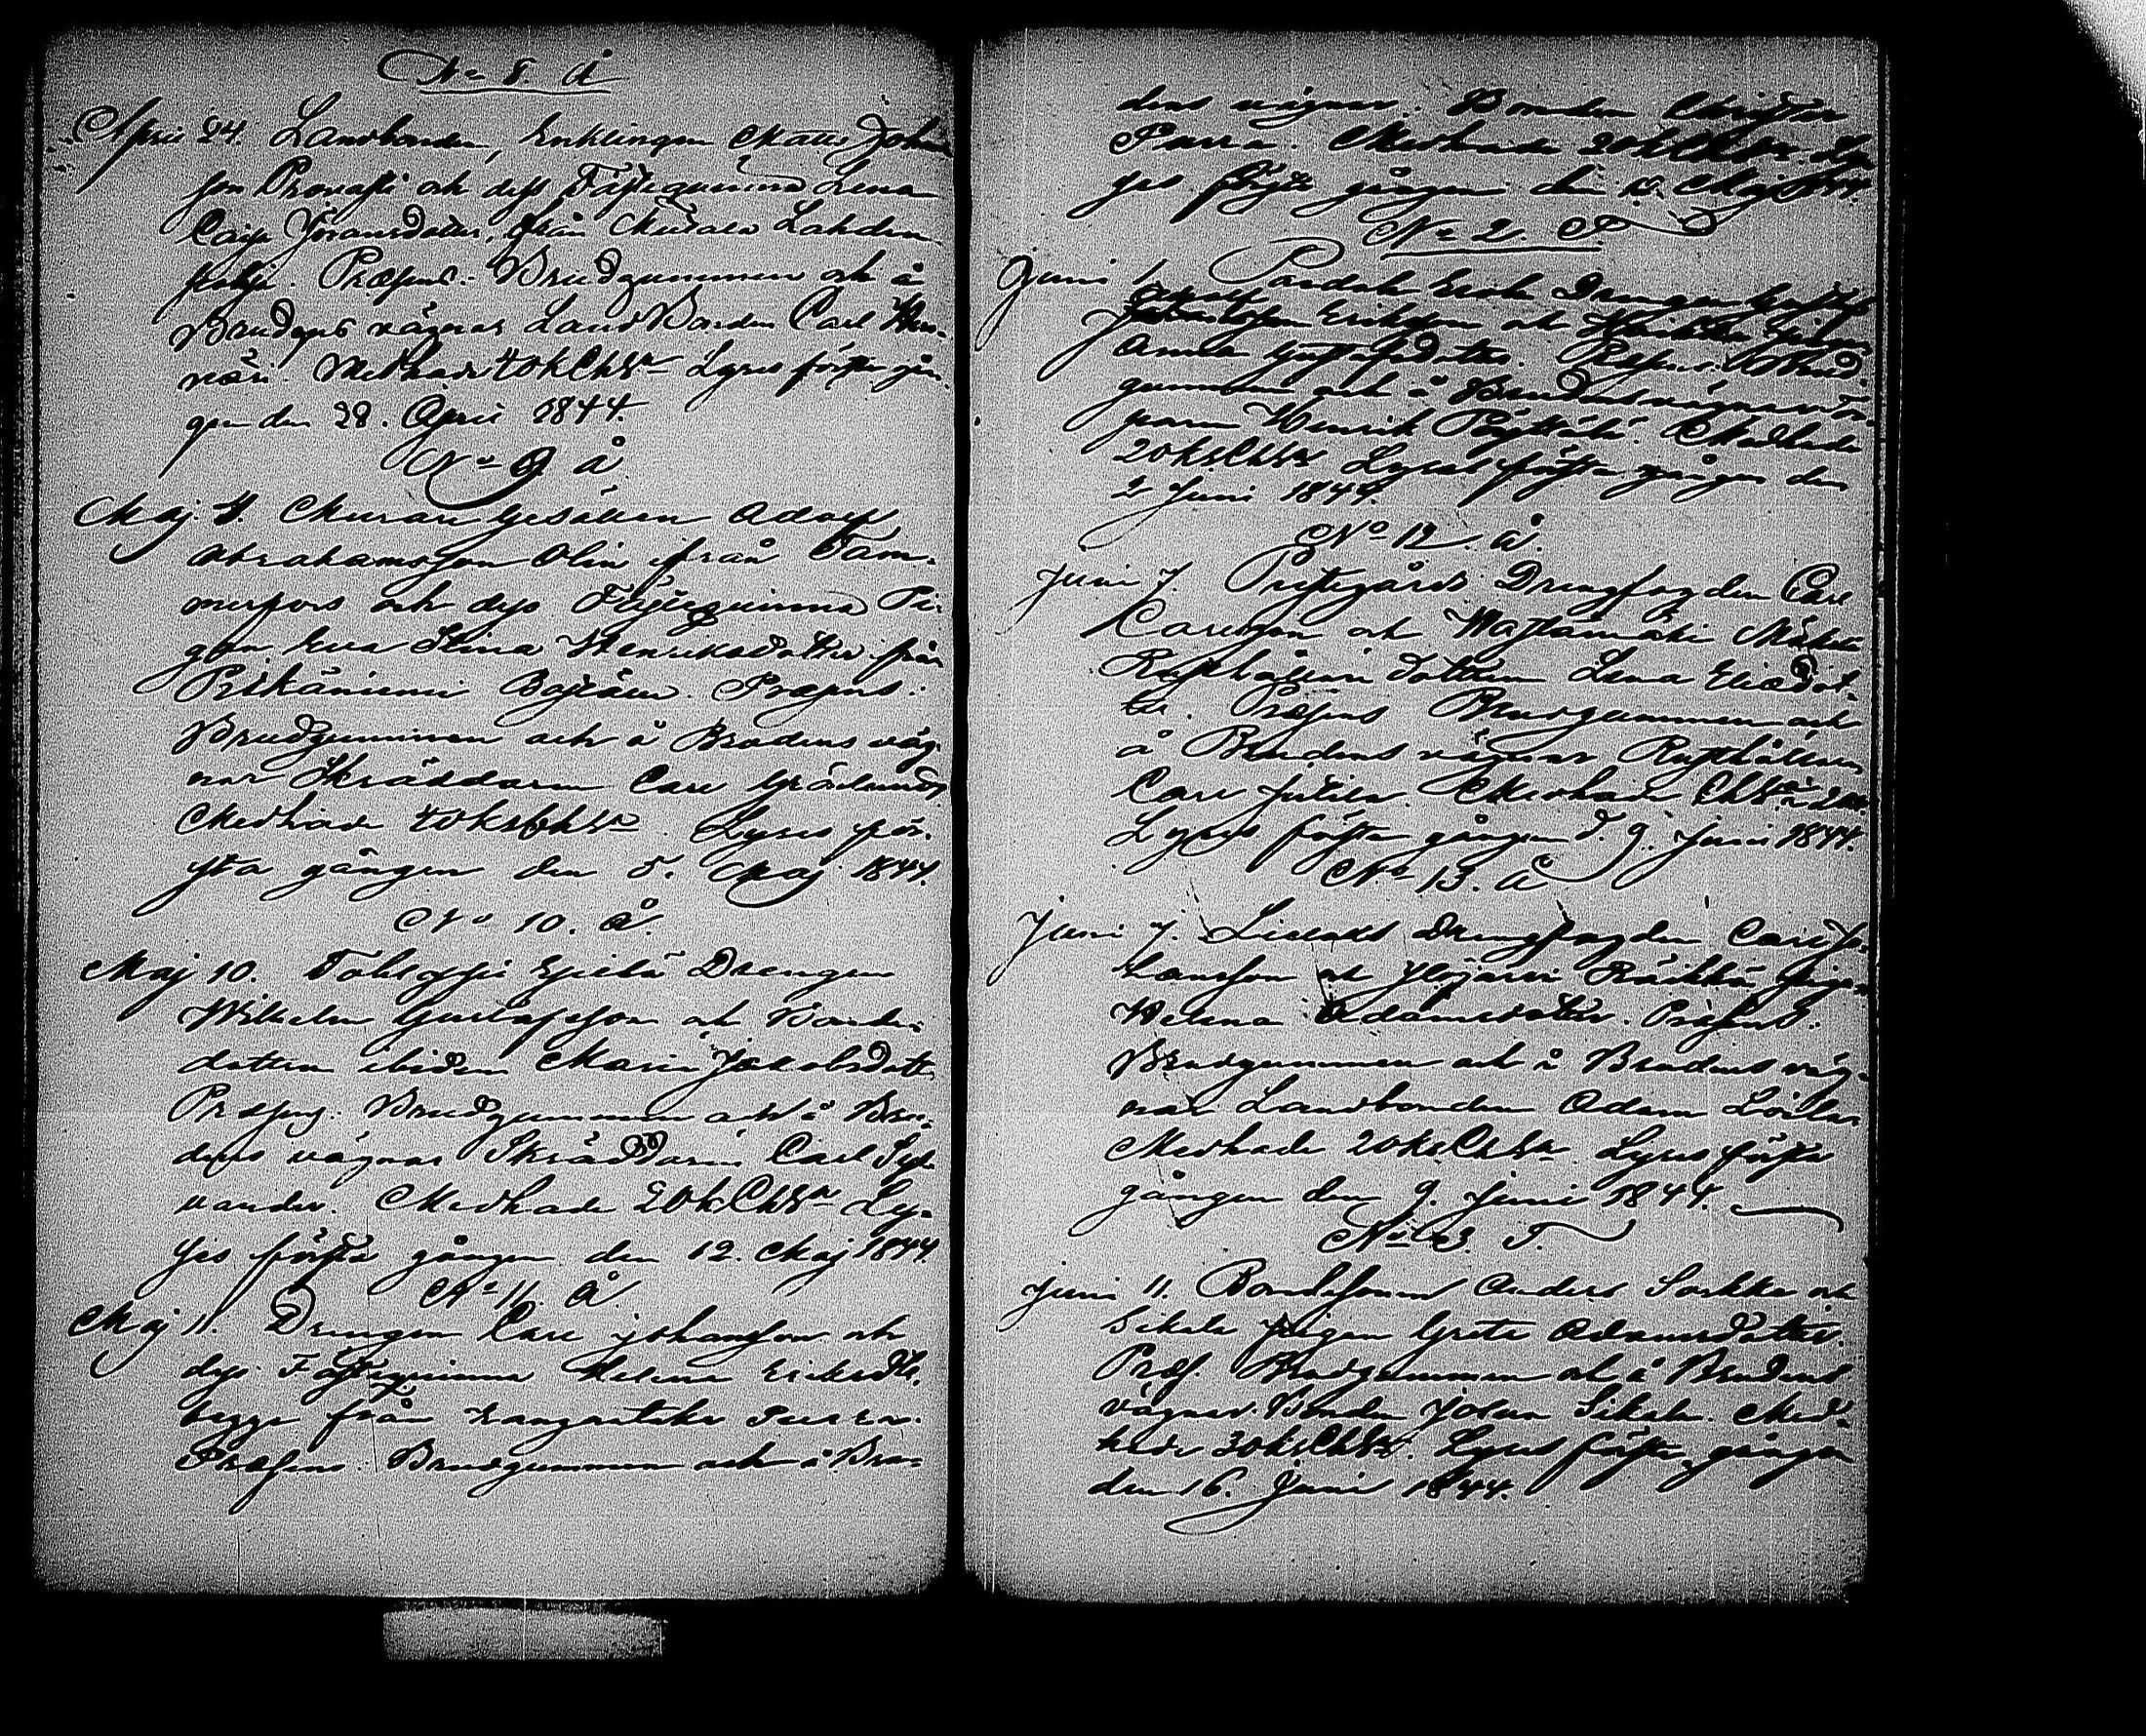 No 8. Å
April 24. Landbonden, Enklingen Matts Johan
son Pronassi och dess Fästeqvinna Lena
Caisa Jöransdotter, från Lahden
pohja. Præsens: Brudgummen och å
Brudens vägnar LandBonden Carl
Medhade 40 k Chsr Lyses första gån
gen den 28. April 1844.
No 9 Å
Maj 4. Murare Gesällen Adolf
Abrahamsson Olin ifrån Tam-
merfors och dess Fästeqvinna Pi-
gan Eva Stina Henriksdotter från
Præsens:
Brudgummen och å Brudens väg-
nar Skräddaren Carl Grönlund,
Medhade 40 ks Chsr Lyses för-
sta gången den 5. Maj 1844.
No 10. Å
Maj 10. Epilä Drengen
Wilhelm Gustafsson och Bonde-
dottren ibidem Maria Jakobsdottr
Præsens: Brudgummen och å Bru-
dens vägnar Skräddaren Carl Syl-
vander. Medhade 20 k Chsr Ly-
ses första gången den 12. Maj 1844
No 11. Å
Maj 11. Drengen Carl Johansson och
dess Fästeqvinna Helena Eriksdtr,
begge från Purra.
Præsens: Brudgummen och å Bru-
dens vägnar. Bonden Christer
Purra. Medhade 20 k Chsr. Ly
ses första gången den 12. Maj 1844.
No 2. T.
Juni 1. Drengen Gustaf
Eriksson och Pigan
Anna Gustafsdotter. Præsens: Brud-
gummen och å Brudens vägnar Tor-
paren Henrik Medhade
20 ks Chsr Lyses första gången den
2 Juni 1844.
No 12. Å.
Juni 7. Prestgårds Drengfogden Carl
Carlsson och
Rusthållare dottren Lena Eliædot-
ter. Præsens Brudgummen och
å Brudens vägnar Rusthållaren
Carl Medhade Chsr
Lyses första gången d. 9. Juni 1844.
No 13. Å
Juni 7. Drengfogden Carl Jo-
hansson och Ylöjärvi Räikkä Pigan
Helena Adamsdotter. Præsens:
Brudgummen och å Brudens väg-
nar Landbonden Adam
Medhade 20 ks Chsr Lyses första
gången den 9. Juni 1844.
No 3. T.
Juni 11. Bondesonen Anders Sorkka och
Sikala Pigan Greta Adamsdotter.
Præs. Brudgummen och å Brudens
vägnar Bonden Johan Sikala. Med-
hade 30 ks Chsr. Lyses första gången
den 16. Juni 1844.